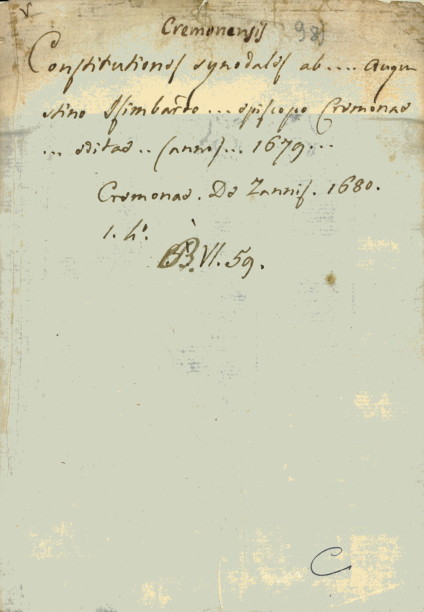 Cremonensis 98
Constitutiones synodales ab .... Augu-
stino Isimbardo ... episcopo Cremonae
... editae .. (anno) ... 1679 ...
Cremonae. De Zannis. 1680.
1. h°.
B. VI. 59.
C